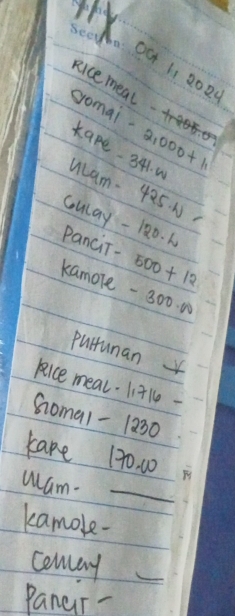 Section: Oct 1, 2024
Rice meal - 1,205.00
Siomai - 2,000 + 1
Kape - 341.00
Ulam - 425.00
Gulay - 120.00
Pancit - 500 + 12
Kamote - 300.00
Puhunan
Rice meal - 1,716 -
Siomai - 1230
Kape 170.00
Ulam -
Kamote -
Pancit -